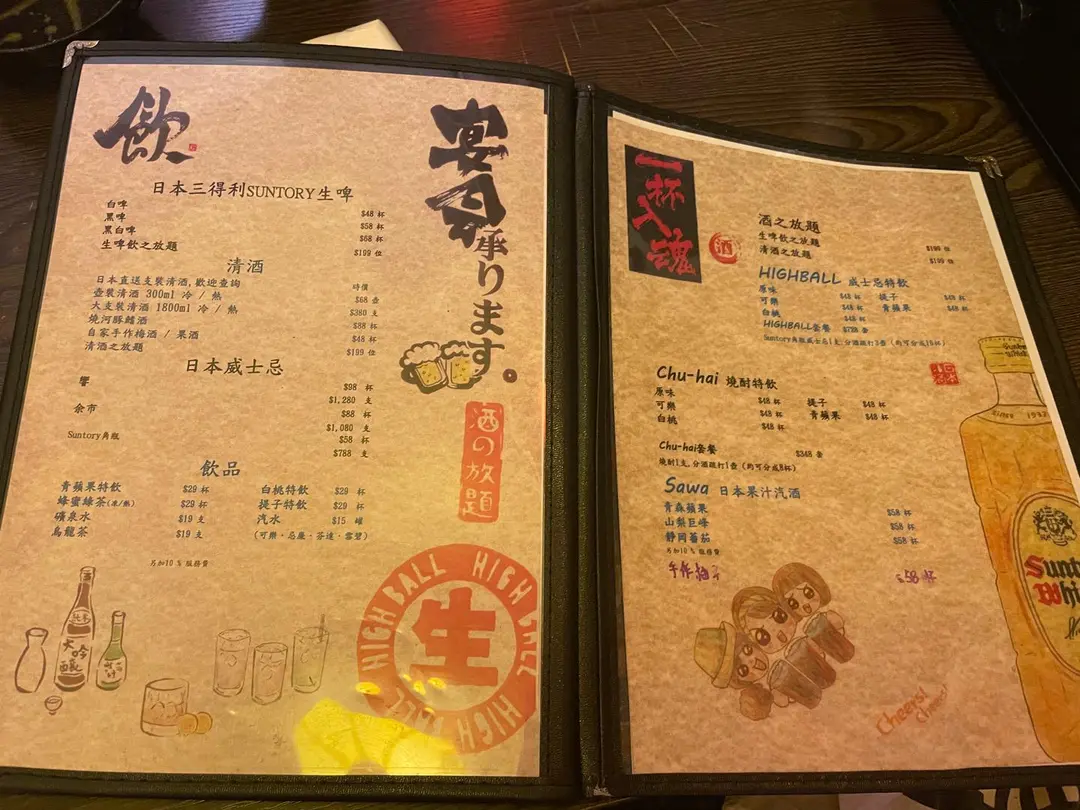 飲
日本三得利SUNTORY生啤
白啤 $48 杯
黑啤 $58 杯
黑白啤 $68 杯
生啤飲之放題 $199 位
清酒
日本直送支裝清酒,歡迎查詢 時價
壺裝清酒 300ml 冷 / 熱 $68 壺
大支裝清酒 1800ml 冷 / 熱 $380 支
燒河豚鰭酒 $88 杯
自家手作梅酒 / 果酒 $48 杯
清酒之放題 $199 位
日本威士忌
響 $98 杯
$1,280 支
余市 $88 杯
$1,080 支
Suntory角瓶 $58 杯
$788 支
飲品
青蘋果特飲 $29 杯 白桃特飲 $29 杯
蜂蜜綠茶(凍/熱) $29 杯 提子特飲 $29 杯
礦泉水 $19 支 汽水 $15 罐
烏龍茶 $19 支 (可樂·忌廉·芬達·雪碧)
另加10 % 服務費
宴会承ります。
酒の放題
HIGH BALL HIGH BALL HIGH BALL
生
純米
大吟醸
一杯入魂
酒
酒之放題
生啤飲之放題 $199 位
清酒之放題 $199 位
HIGHBALL 威士忌特飲
原味 $48 杯 提子 $48 杯
可樂 $48 杯 青蘋果 $48 杯
白桃 $48 杯
HIGHBALL套餐 $728 套
Suntory角瓶威士忌1支,分酒跟打3壺 (約可分成16杯)
Chu-hai 燒酎特飲
原味 $48 杯 提子 $48 杯
可樂 $48 杯 青蘋果 $48 杯
白桃 $48 杯
Chu-hai套餐 $348 套
燒酎1支,分酒跟打1壺 (約可分成8杯)
Sawa 日本果汁汽酒
青森蘋果 $58 杯
山梨巨峰 $58 杯
靜岡蕃茄 $58 杯
另加10 % 服務費
手作梅酒 $58 杯
Cheers!
Cheers!
Suntory
Whisky
1937